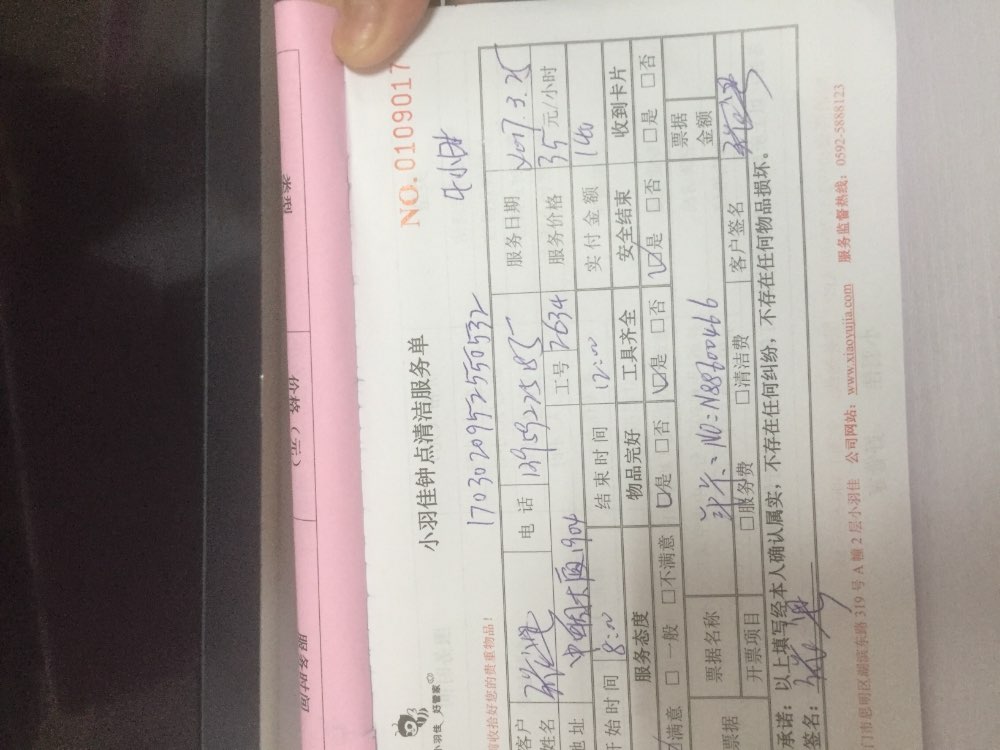 NO.0109017
小羽佳钟点清洁服务单
小羽佳 好管家
请收拾好您的贵重物品!
17030209525550532
客户姓名 电话 13959227585 服务日期 2017.3.25
地址 工号 2634 服务价格 35元/小时
开始时间 8:00 结束时间 12:00 实付金额 140
服务态度 物品完好 工具齐全 安全结束 收到卡片
☑满意 □一般 □不满意 ☑是 □否 ☑是 □否 ☑是 □否 □是 □否
票据 票据名称 NO:N88600466 票据金额
开票项目 □服务费 □清洁费 客户签名
承诺:以上填写经本人确认属实,不存在任何纠纷,不存在任何物品损坏。
签名:
门市思明区湖滨东路319号A幢2层小羽佳 公司网站:www.xiaoyujia.com 服务监督热线:0592-5888123
类型
价格(元)
服务时间